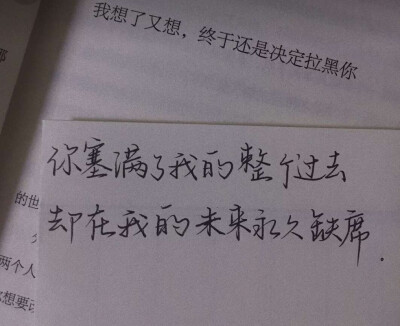 我想了又想，终于还是决定拉黑你
你塞满了我的整个过去
却在我的未来永久缺席.
的世
两个人
想要